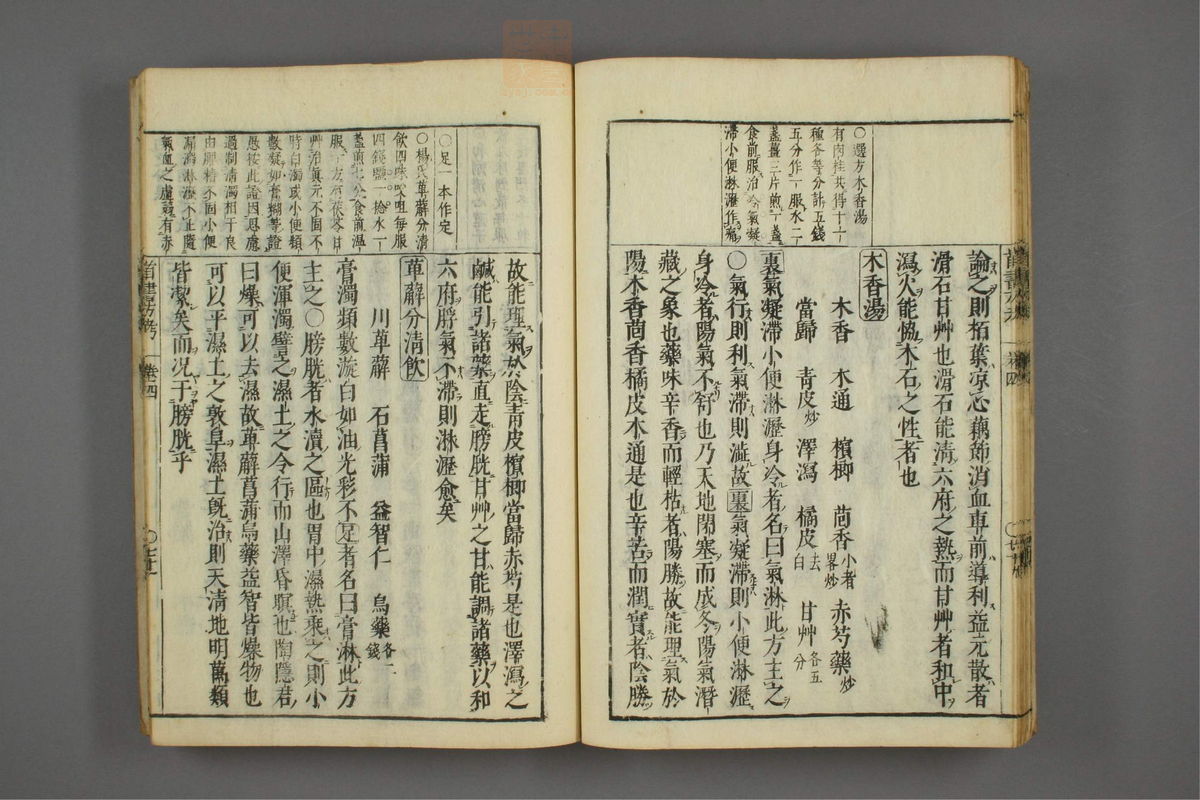 論之則栢葉涼心藕節消血車前導利益元散者
滑石甘艸也滑石能清六府之熱而甘艸者和中
瀉火能恊木石之性者也
木香湯
木香 木通 檳榔 茴香小者畧炒 赤芍藥炒
當歸 青皮炒 澤瀉 橘皮去白 甘艸各五分
裏氣凝滯小便淋瀝身冷者名曰氣淋此方主之
〇氣行則利氣滯則澁故裏氣凝滯則小便淋瀝
身冷者陽氣不舒也乃天地閉塞而成冬陽氣潛
藏之象也藥味辛香而輕枯者陽勝故能理氣於
陽木香茴香橘皮木通是也辛苦而潤實者陰勝
〇選方木香湯
有肉桂共得十一
種各等分計五錢
五分作一服水二
盞薑三片煎一盞
食前服治冷氣凝
滯小便淋澁作痛
故能理氣於陰青皮檳榔當歸赤芍是也澤瀉之
鹹能引諸藥直走膀胱甘艸之甘能調諸藥以和
六府脬氣不滯則淋瀝愈矣
萆薢分清飲
川萆薢 石菖蒲 益智仁 烏藥各一錢
膏濁類數漩白如油光彩不足者名曰膏淋此方
主之〇膀胱者水瀆之區也胃中濕熱乘之則小
便渾濁譬之濕土之令行而山澤昏暝也陶隱君
曰燥可以去濕故萆薢菖蒲烏藥益智皆燥物也
可以平濕土之敦阜濕土旣治則天清地明萬類
皆潔矣而况于膀胱乎
〇足一本作定
〇楊氏萆薢分清
飲四味㕮咀每服
四錢鹽一捻水一
盞煎七分食前溫
服一方有茯苓甘
艸治眞元不固不
時白濁或小便頻
數凝如膏糊等證
愚按此證因思慮
過制清濁相干良
由脬精不固小便
漏濁淋瀝不止隨
氣血之虛實有赤
卷四